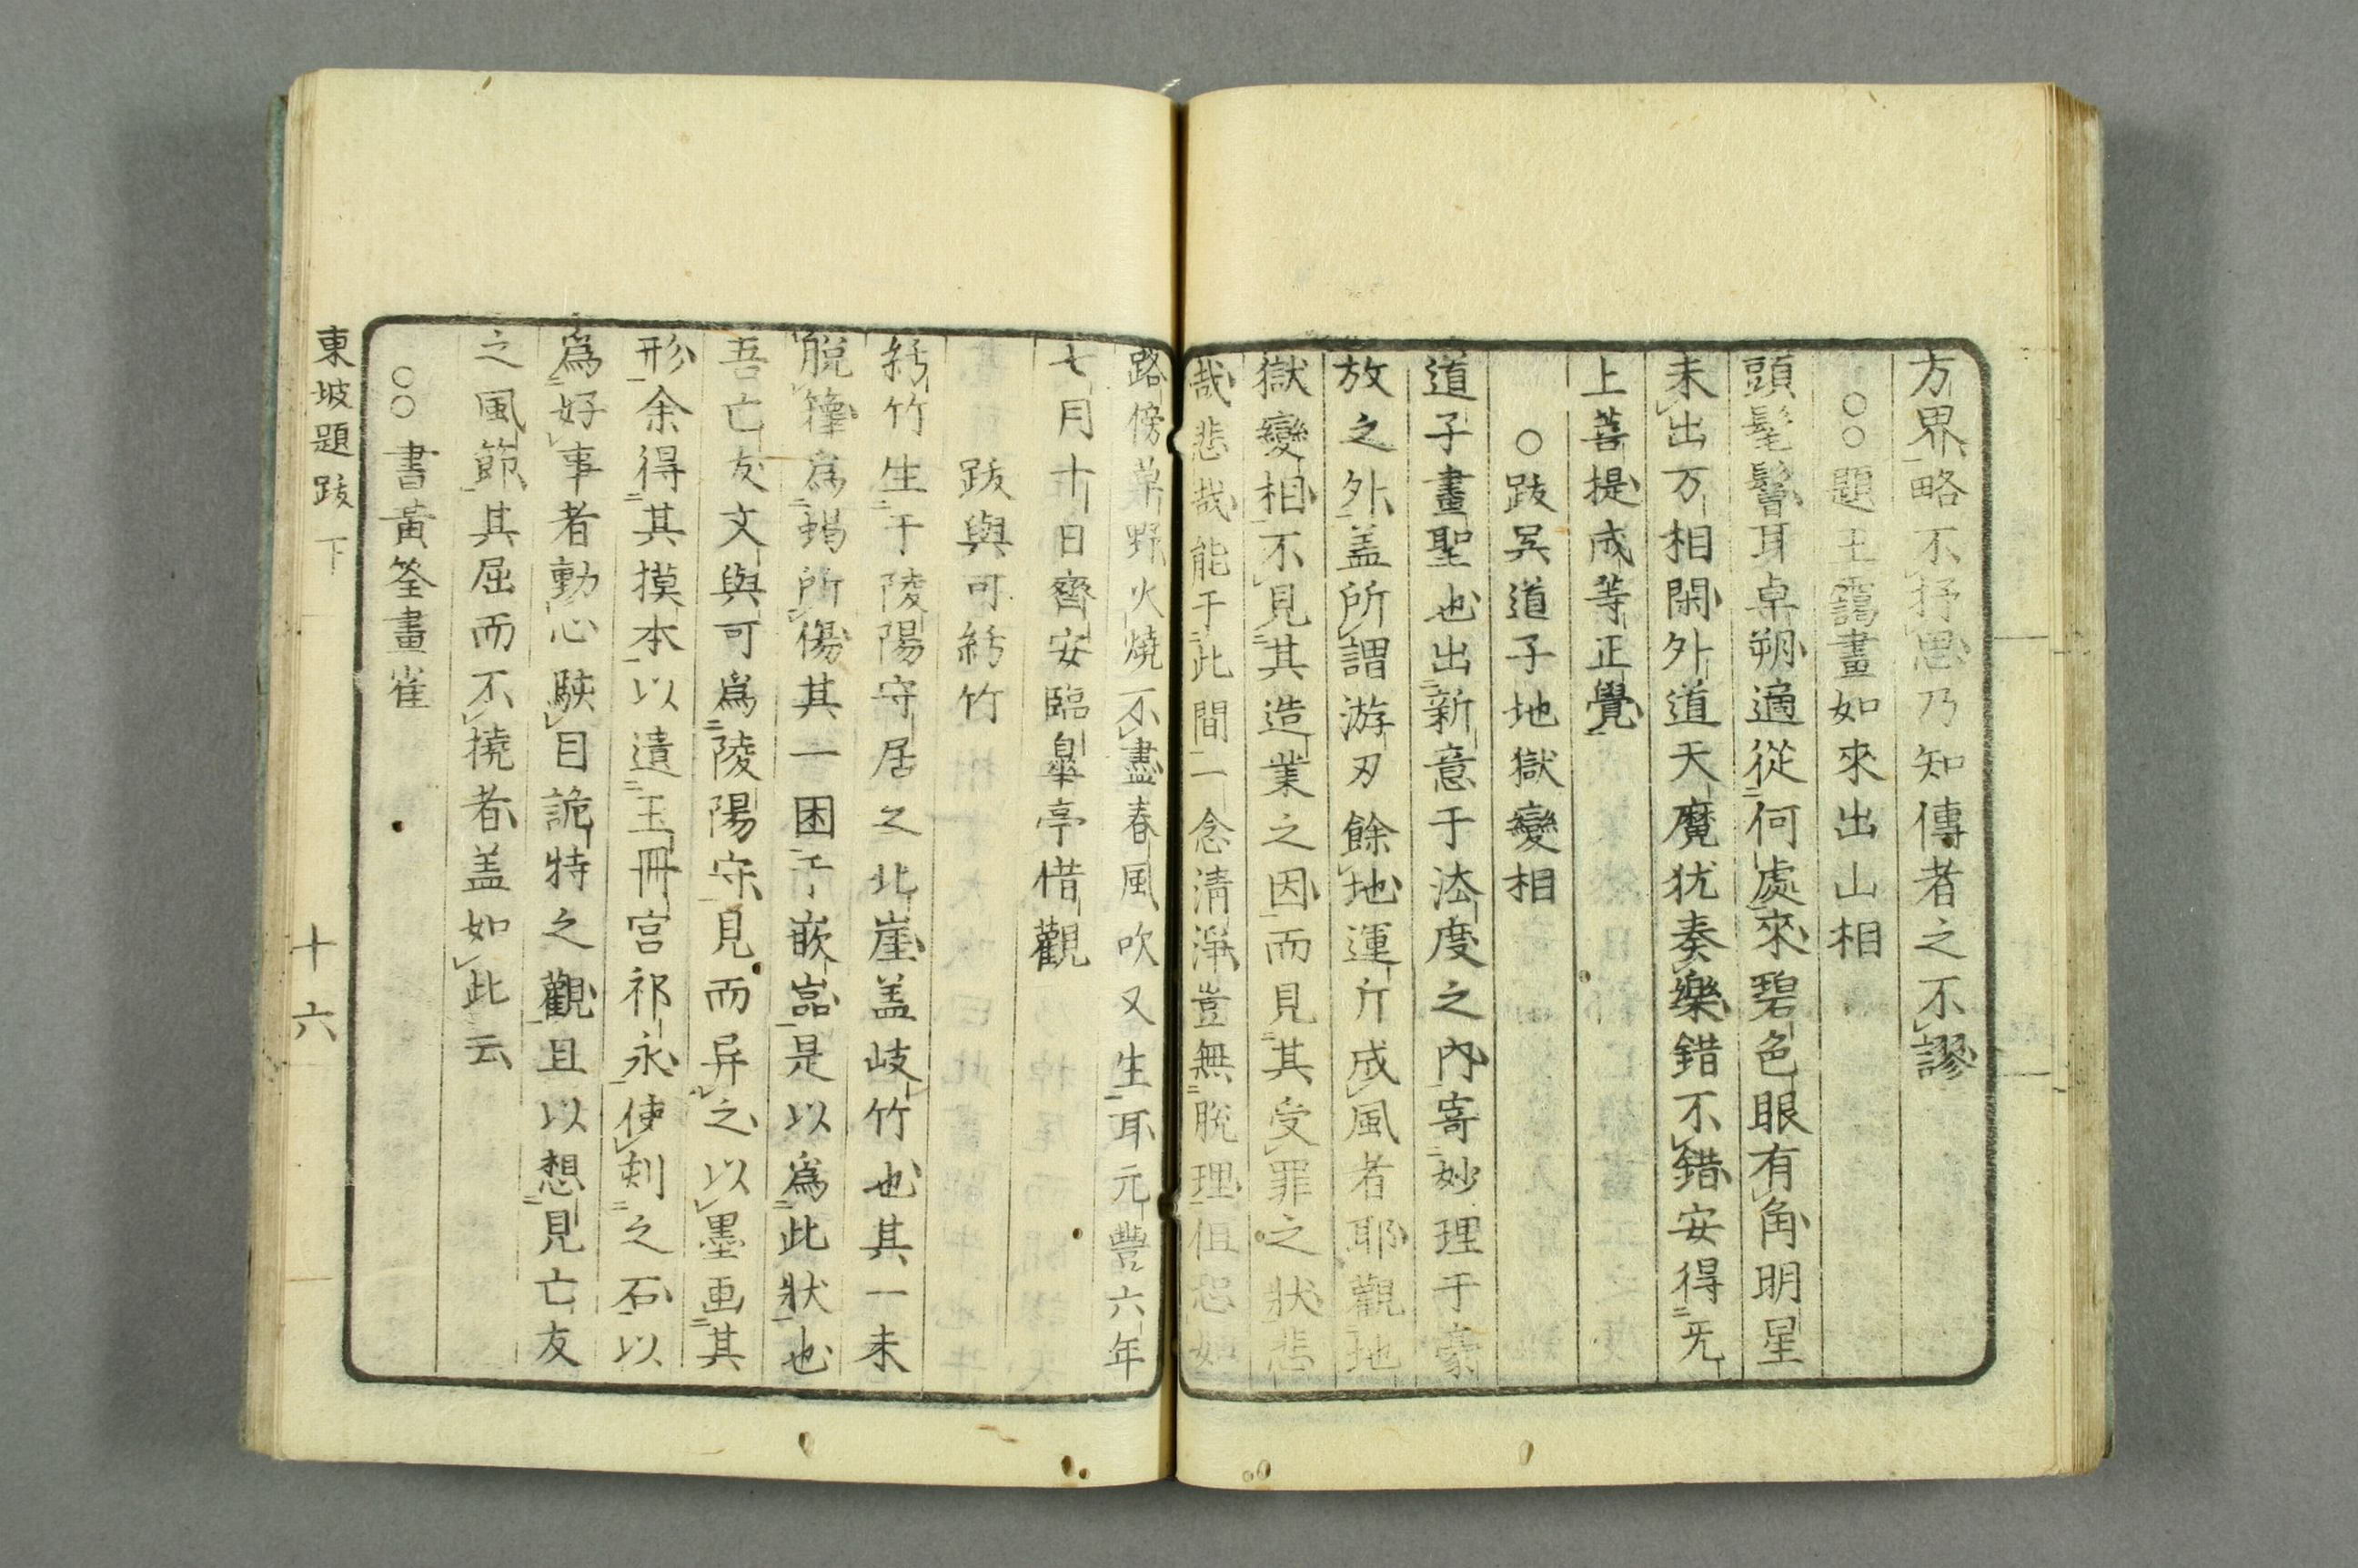 方界略不抒思乃知傳者之不謬
○○題王靄畫如來出山相
頭髦鬖耳卓朔適從何處來碧色眼有角明星
未出万相閑外道天魔犹奏樂錯不錯安得无
上菩提成等正覺
○跋吳道子地獄變相
道子畫聖也出新意于法度之內寄妙理于豪
放之外盖所謂游刃餘地運斤成風者耶觀地
獄變相不見其造業之因而見其受罪之狀悲
哉悲哉能于此間一念清淨豈無脫理但恐如
路傍草野火燒不盡春風吹又生耳元豐六年
七月十日齊安臨皐亭借觀
跋與可紆竹
紆竹生于陵陽守居之北崖盖岐竹也其一未
脫籜爲蝎所傷其一困于嵌嵓是以爲此狀也
吾亡友文與可爲陵陽守見而异之以墨画其
形余得其摸本以遺玉冊宫祁永使刻之石以
爲好事者動心駴目詭特之觀且以想見亡友
之風節其屈而不撓者盖如此云
○○書黃筌畫雀
東坡題跋 下 十六